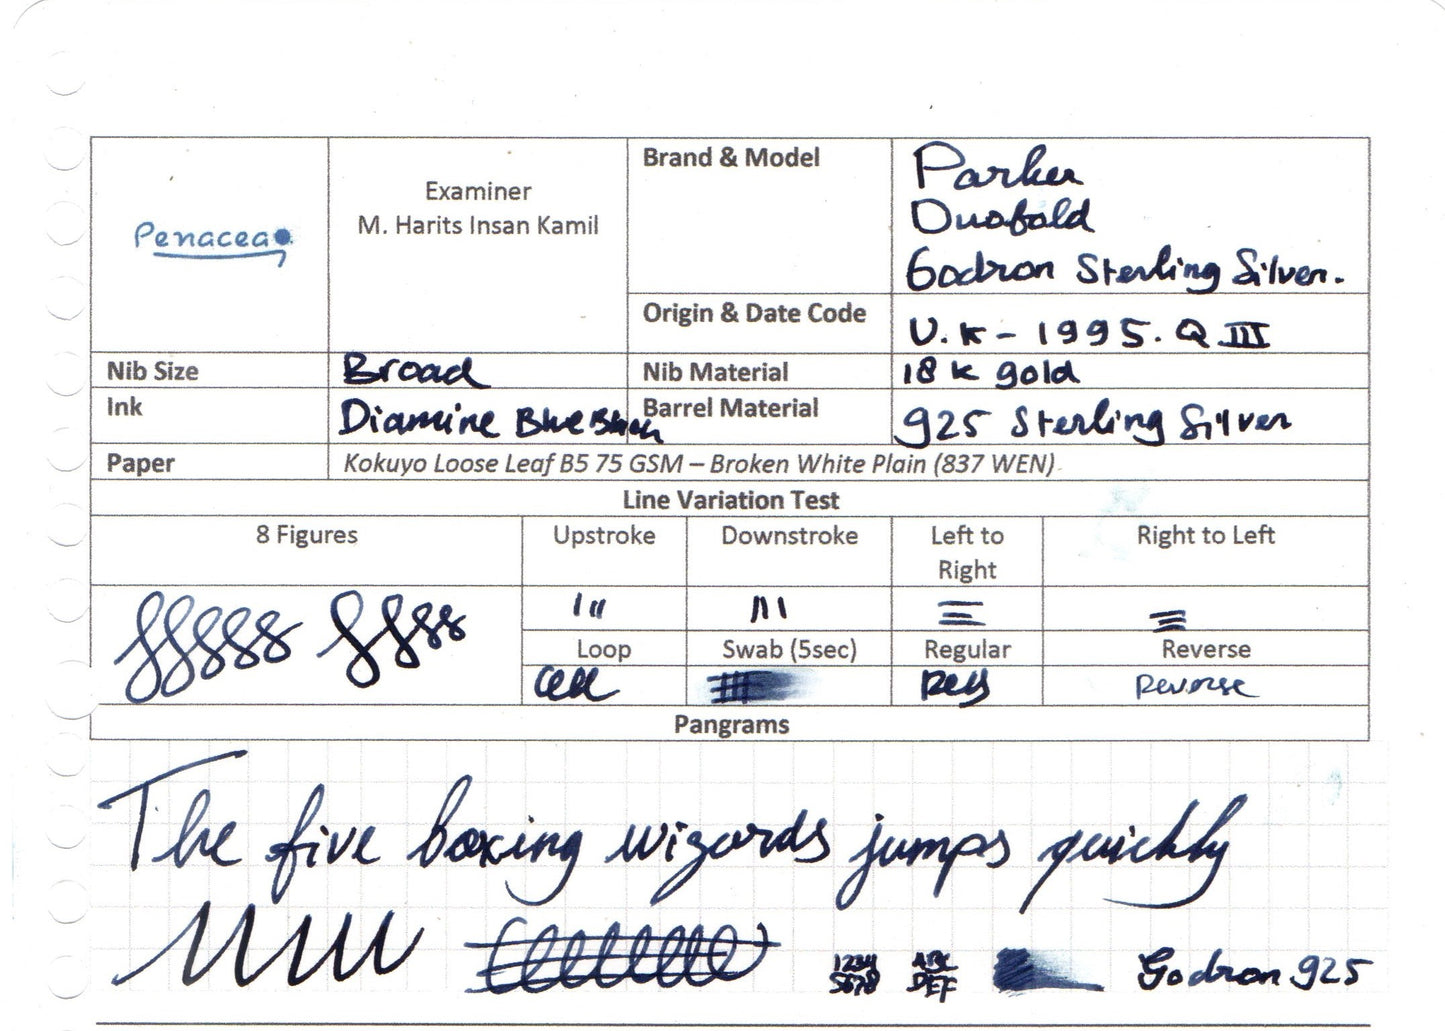 Penacea
Examiner
M. Harits Insan Kamil
Brand & Model
Parker
Duofold
Godron Sterling Silver.
Origin & Date Code
U.K - 1995. Q.III
Nib Size
Broad
Nib Material
18 k gold
Ink
Diamine Blue Black
Barrel Material
925 Sterling Silver
Paper
Kokuyo Loose Leaf B5 75 GSM – Broken White Plain (837 WEN)
Line Variation Test
8 Figures
Upstroke
Downstroke
Left to
Right
Right to Left
Loop
Swab (5sec)
Regular
Reverse
Reg
Reverse
Pangrams
The five boxing wizards jumps quickly
1234
5678
ABC
DEF
Godron 925